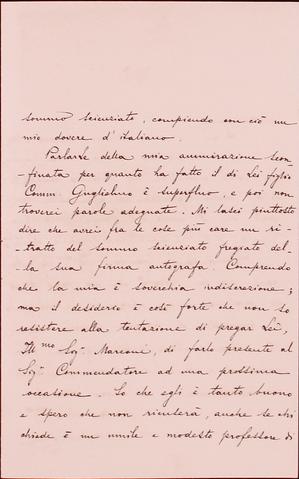 sommo scienziato, compiendo con ciò un
mio dovere d'italiano.
Parlarle della mia ammirazione scon-
finata per quanto ha fatto il di Lei figlio
Comm. Guglielmo è superfluo, e poi non
troverei parole adeguate. Mi lasci piuttosto
dire che avrei fra le cose più care un ri-
tratto del sommo scienziato fregiato del-
la sua firma autografa. Comprendo
che la mia è soverchia indiscrezione;
ma il desiderio è così forte che non so
resistere alla tentazione di pregar Lei,
Ill.mo Sig. Marconi, di farlo presente al
Sig. Commendatore ad una prossima
occasione. So che egli è tanto buono
e spero che non ricuserà, anche se chi
chiede è un umile e modesto professore di